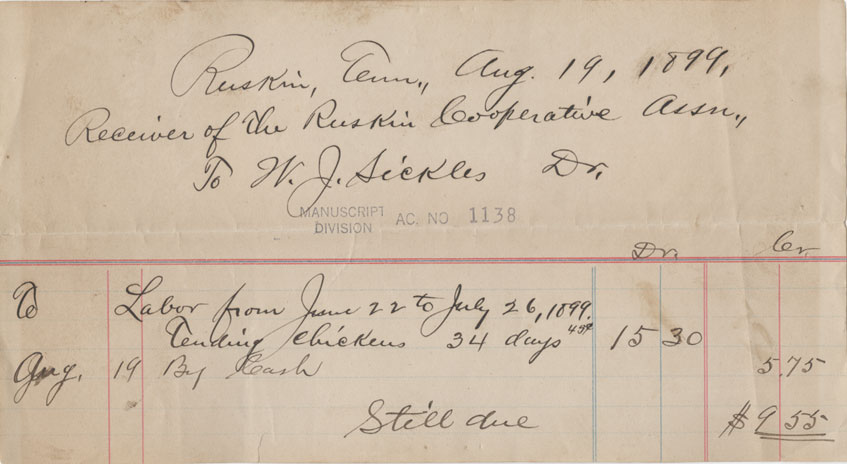 Ruskin, Tenn., Aug. 19, 1899.
Receiver of the Ruskin Cooperative Assn.,
To W. J. Sickles Dr.
MANUSCRIPT DIVISION AC. NO 1138
Dr. Cr.
To Labor from June 22 to July 26, 1899.
Tending chickens 34 days 45¢ 15 30
Aug. 19 By Cash 5.75
Still due $9 55